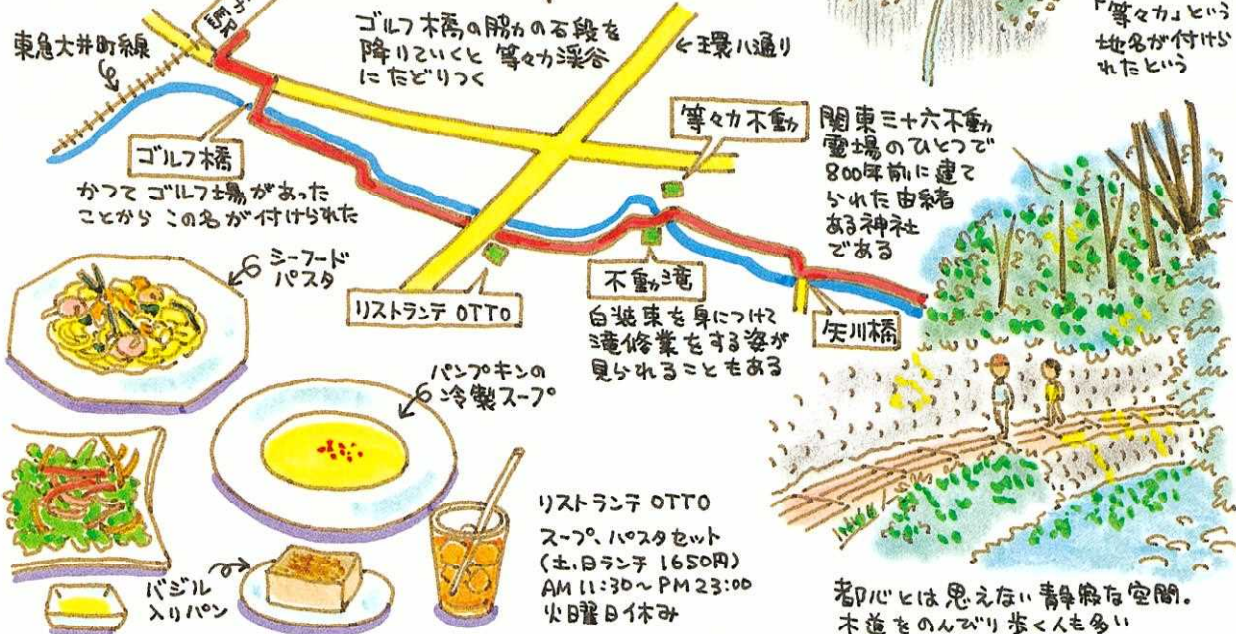 東急大井町線
ゴルフ橋の脇の石段を
降りていくと 等々力渓谷
にたどりつく
←環八通り
「等々力」という
地名が付けら
れたという
ゴルフ橋
かつて ゴルフ場があった
ことから この名が付けられた
等々力不動
関東三十六不動
霊場のひとつで
800年前に建て
られた由緒
ある神社
である
リストランテ OTTO
不動滝
白装束を身につけて
滝修業をする姿が
見られることもある
矢川橋
シーフード
パスタ
パンプキンの
冷製スープ
バジル
入りパン
リストランテ OTTO
スープ、パスタセット
(土、日ランチ 1650円)
AM 11:30～PM 23:00
火曜日休み
都心とは思えない静寂な空間。
木道をのんびり歩く人も多い